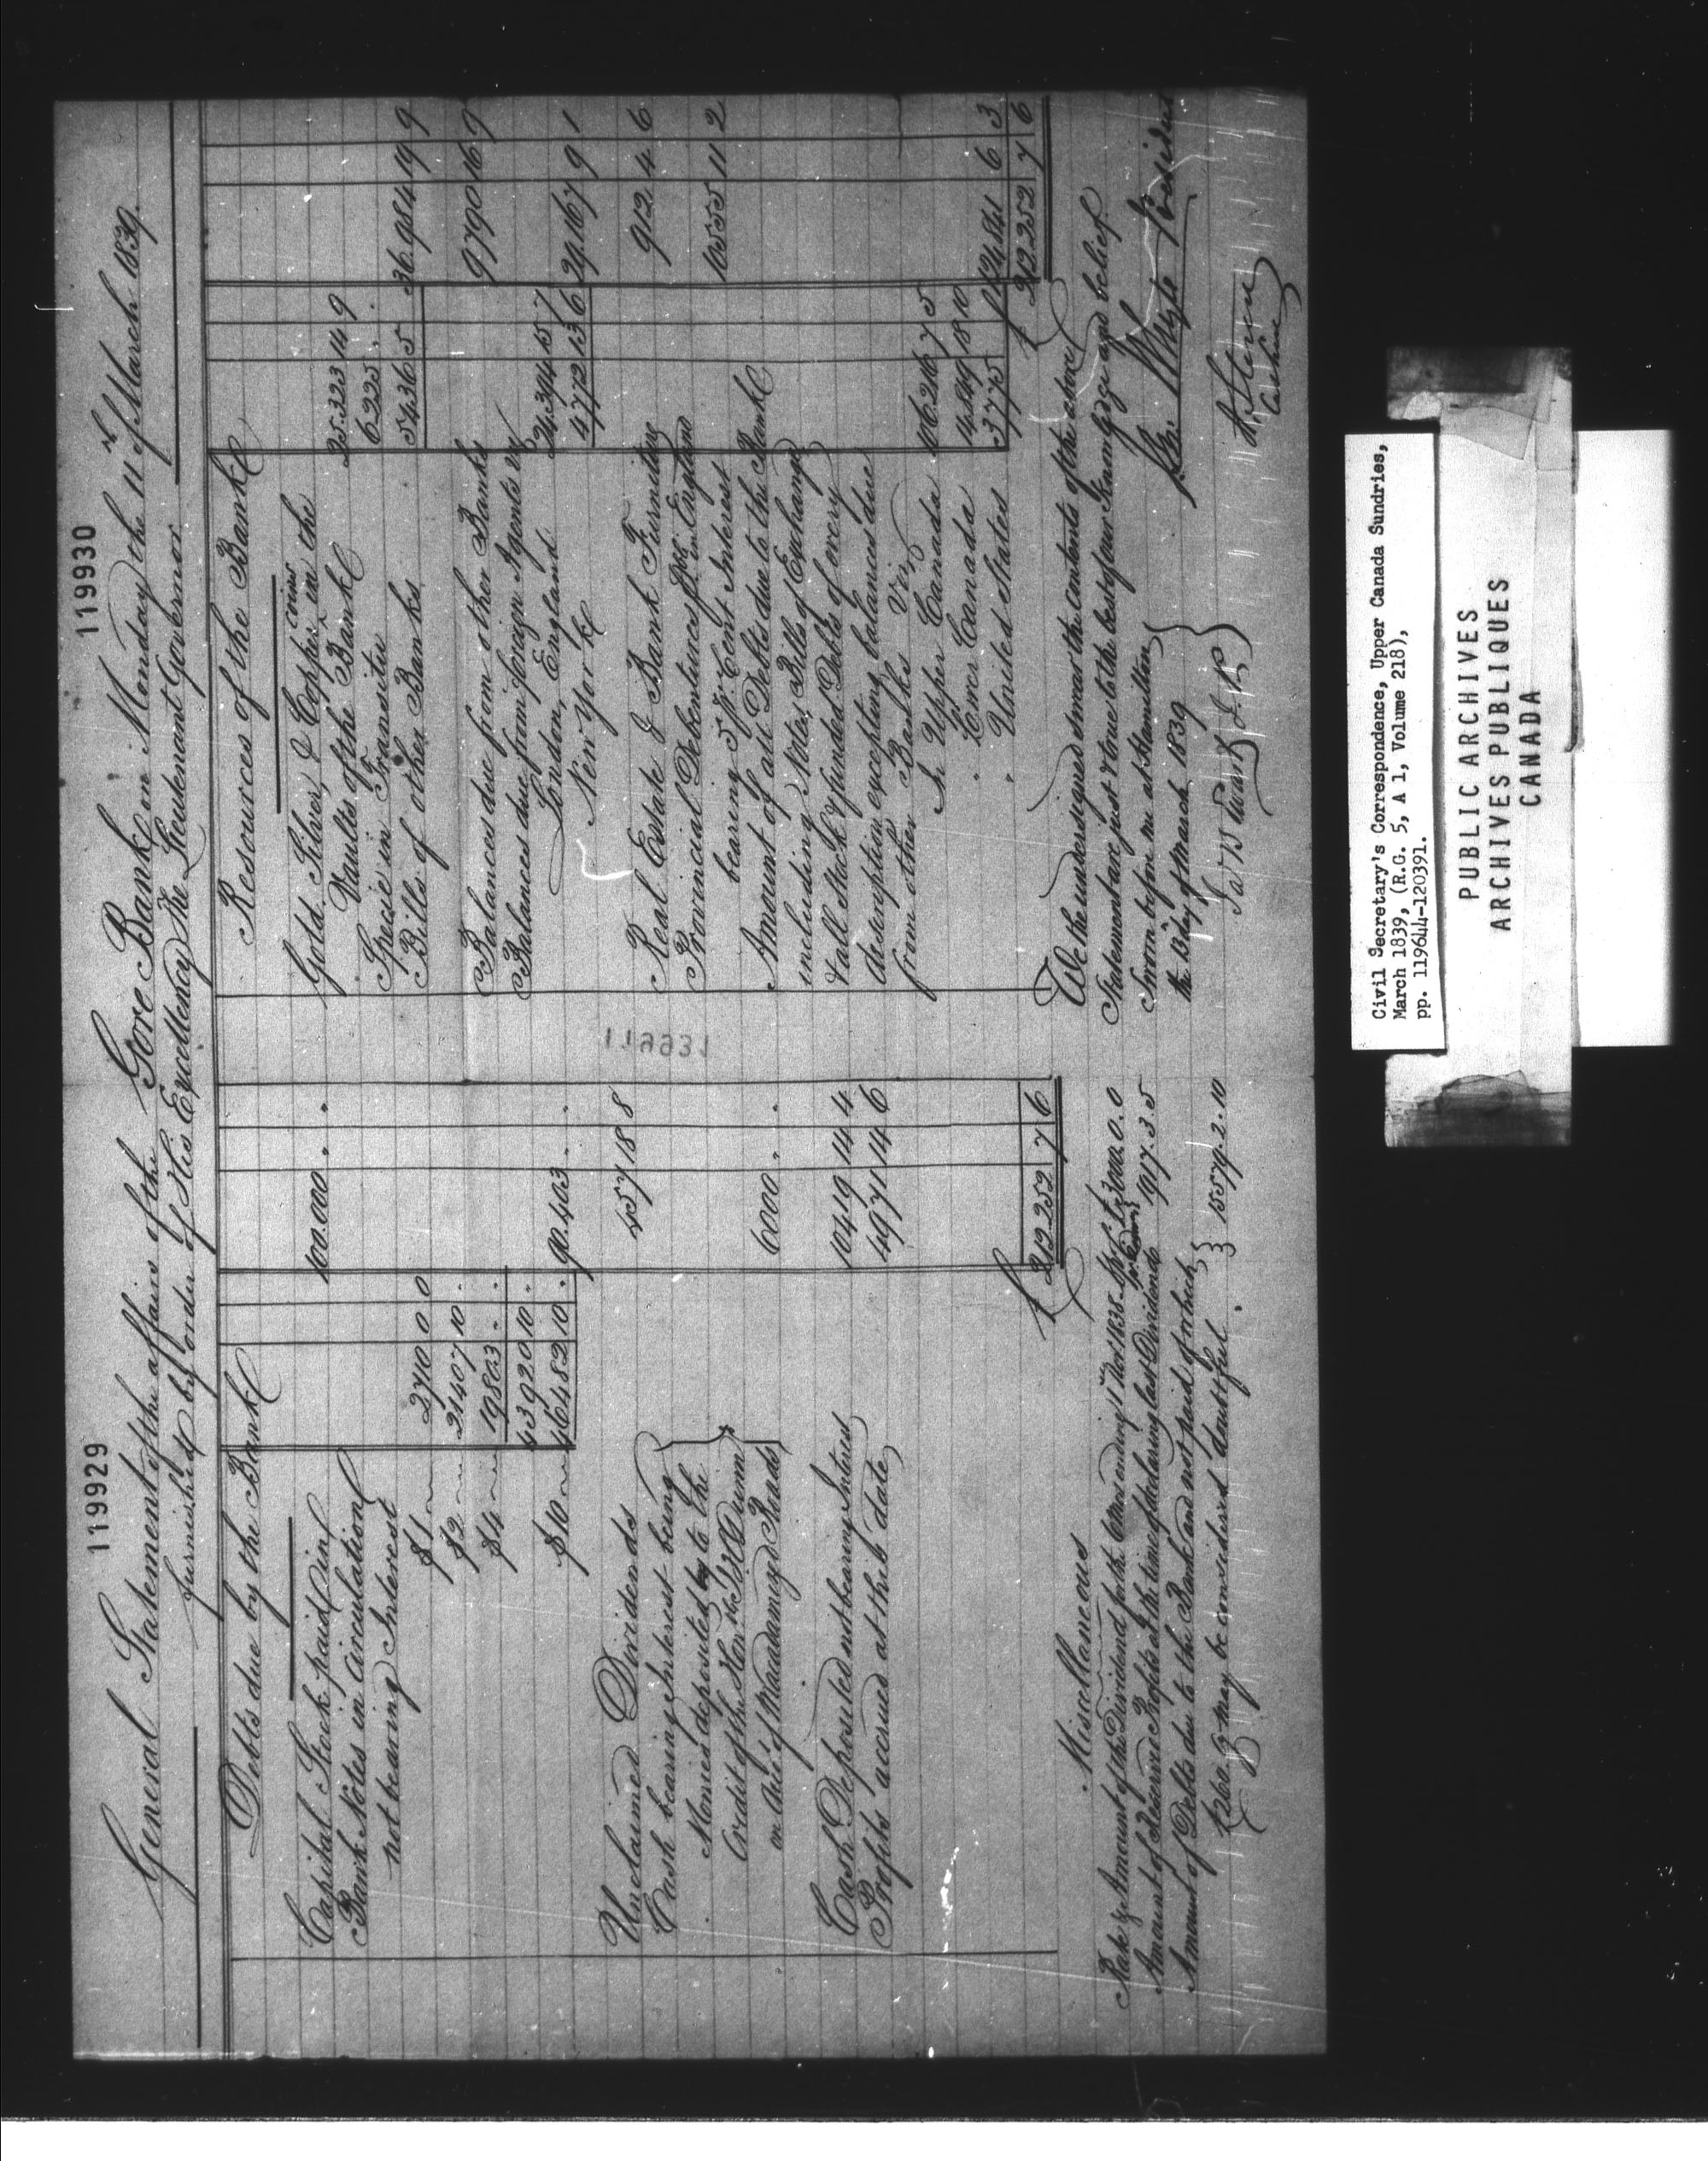 119929
119930
General Statement of the affairs of the Gore Bank on Monday the 11th of March 1839.
furnished by order of His Excellency The Lieutenant Governor
Debts due by the Bank
Capital Stock paid in 100.000 " "
Bank Notes in Circulation
not bearing Interest
$1 2710 0 0
$2 21407 10 "
$4 19803 " "
43920 10 "
$10 46482 10 " 90.403 " "
Unclaimed Dividends 457 18 8
Cash bearing Interest being
Monies deposited by to the
Credit of the Honble J H Dunn
on acct of Macadamized Roads 6000 " "
Cash Deposited not bearing Interest 10419 14 4
Profits accrued at this date 4971 14 6
£ 212.252 7 6
Miscellaneous
Rate & Amount of the Dividend for the 6 mos ending 1 Nov 1838 £3000.0.0
Amount of Reserved Profits at the time of declaring last Dividend 1917.3.5
Amount of Debts due to the Bank and not paid of which
£260 may be considered doubtful 15579.2.10
Resources of the Bank
Gold, Silver, & Copper coins in the
Vaults of the Bank 25.323 14 9
Specie in Transitu 6225 "
Bills of other Banks 5436 5 36.984 19 9
Balances due from other Banks 9790 16 9
Balances due from foreign Agents in
London, England 24.394 15 7
New York 4772 13 6 29.167 9 1
Real Estate & Bank Furniture 912 4 6
Provincial Debentures in England
bearing 5 Pr. Cent Interest 10555 11 2
Amount of all Debts due to the Bank
including Notes, Bills of Exchange
& all Stock & funded Debts of every
description excepting balances due
from other Banks Viz
In Upper Canada 116.216 7 5
" Lower Canada 4.849 18 10
" United States 3775 124.841 6 3
£ 212.252 7 6
We the undersigned swear the contents of the above
Statement are just & true to the best of our knowledge and belief
Sworn before me at Hamilton
the 13 day of March 1839
President
A Steven
Cashier
119931
Civil Secretary's Correspondence, Upper Canada Sundries,
March 1839, (R.G. 5, A 1, Volume 218),
pp. 119644-120391.
PUBLIC ARCHIVES
ARCHIVES PUBLIQUES
CANADA